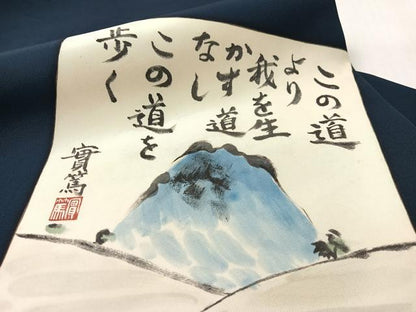 この道
より
我を生
かす道
なし
この道を
歩く
實篤